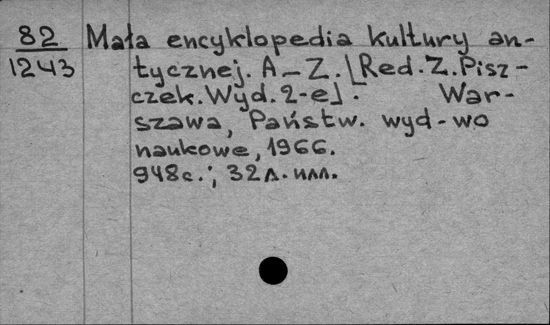 82 Mała encyklopedia kultury an-
1243 tycznej. A–Z. [Red. Z. Pisz-
czek. Wyd. 2-e]. War-
szawa, Państw. wyd-wo
naukowe, 1966.
948с.; 32л. илл.